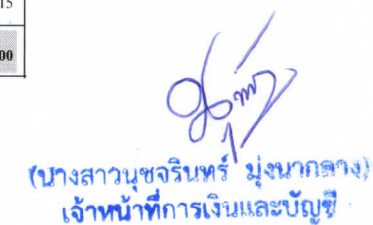 15
00
(นางสาวนุชจรินทร์ มุ่งนากลาง)
เจ้าหน้าที่การเงินและบัญชี